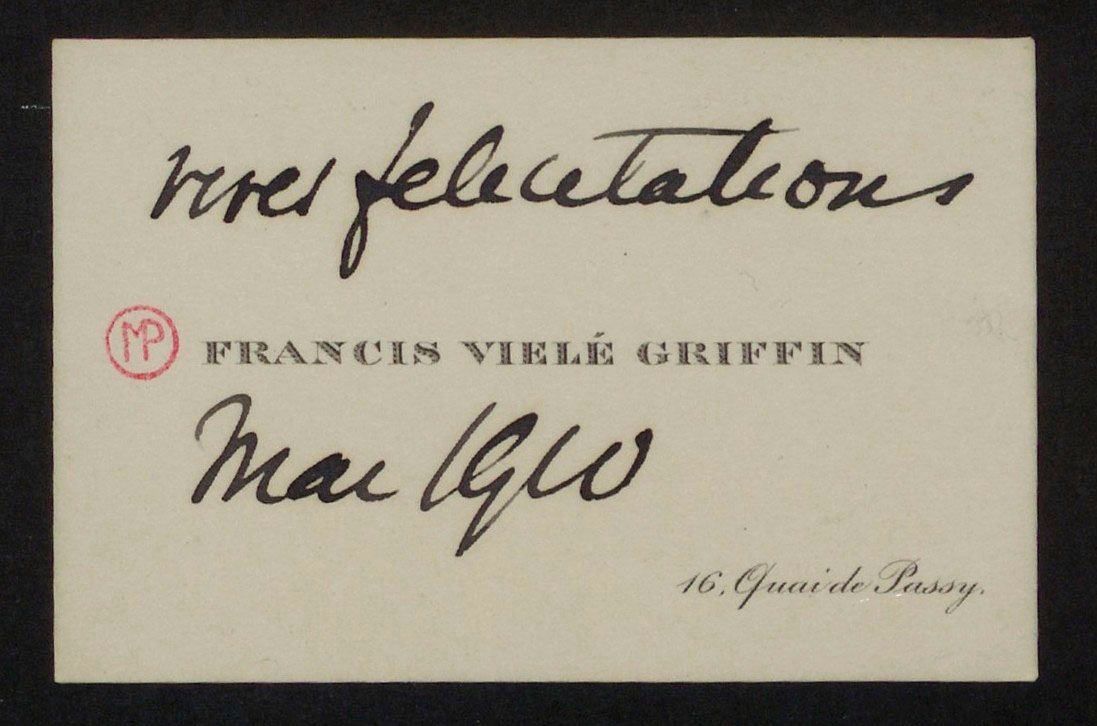 vives felicitations
MP
FRANCIS VIELÉ GRIFFIN
Mai 1910
16, Quai de Passy.